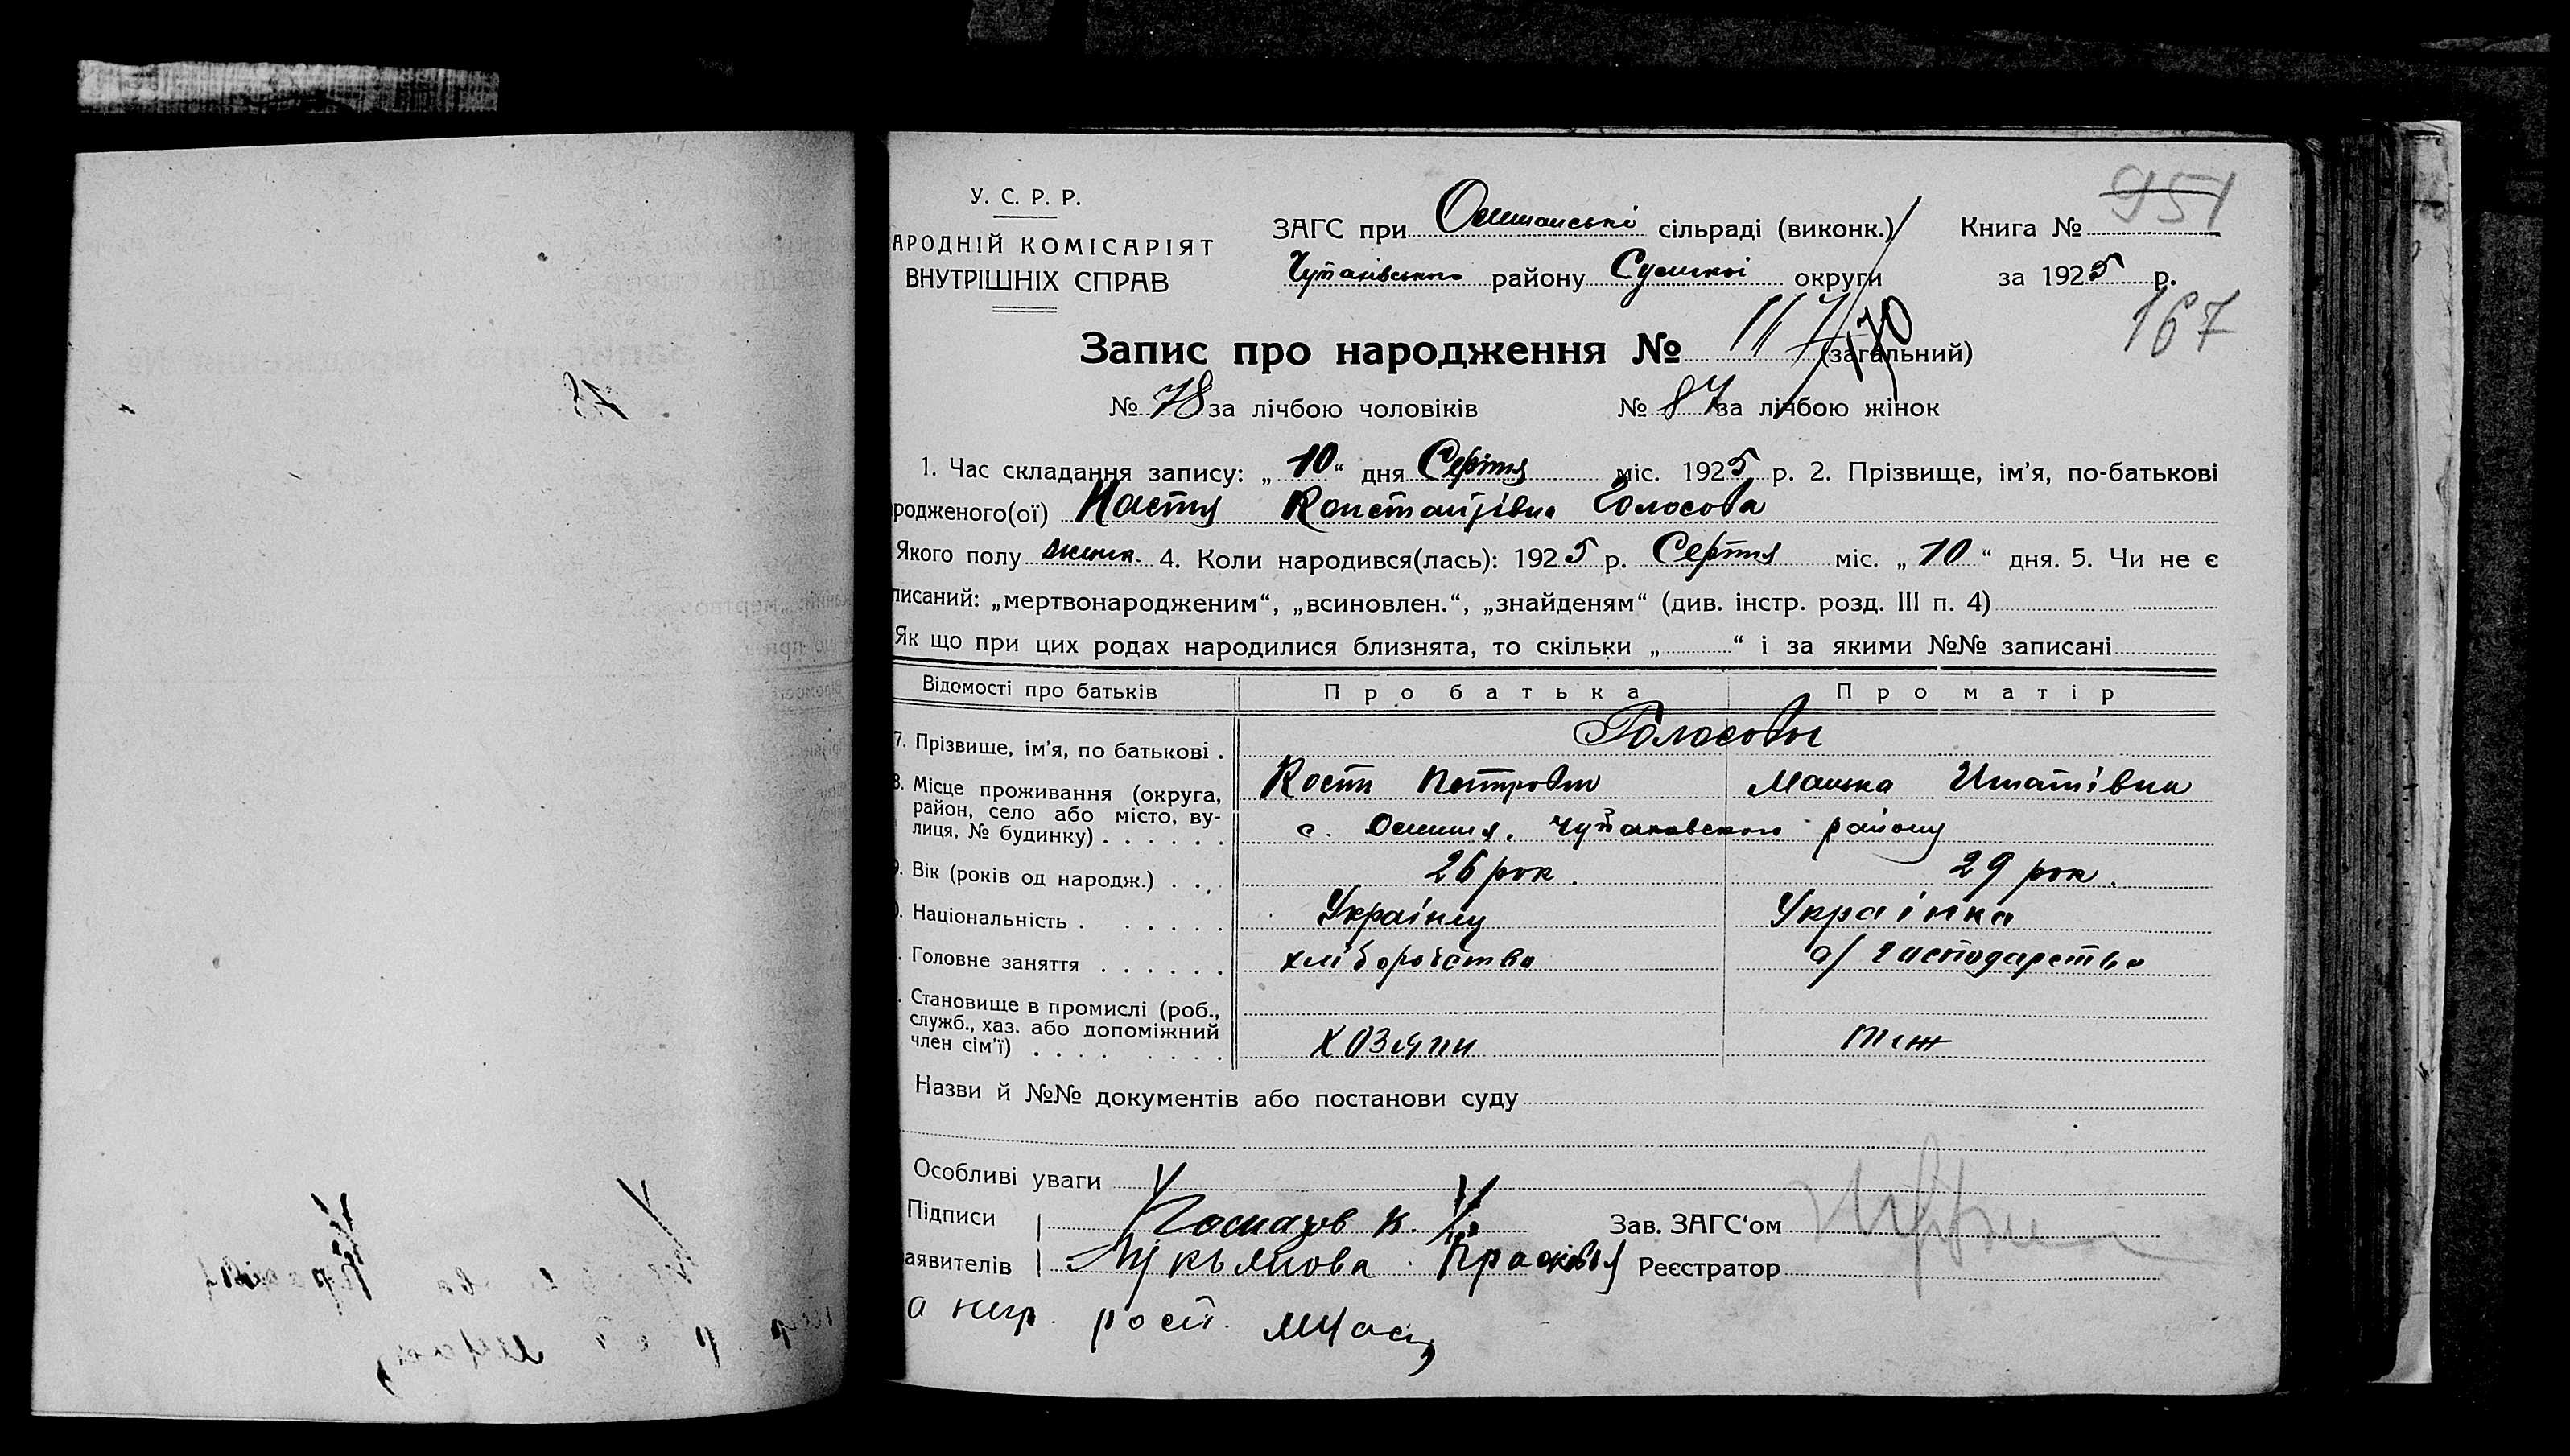 У. С. Р. Р.
АРОДНІЙ КОМІСАРІЯТ
ВНУТРІШНІХ СПРАВ
ЗАГС при сільраді (виконк.)
района району Сумської округи
Книга № 951
за 1925 р.
167
Запис про народження № 117 170 (загальний)
№ 78 за лічбою чоловіків № 87 за лічбою жінок
1. Час складання запису: „ 10 “ дня Серпня міс. 1925 р. 2. Прізвище, ім’я, по-батькові
родженого(ої) Настя Константівна Голосова
Якого полу жінк. 4. Коли народився(лась): 1925 р. Серпня міс. „ 10 “ дня. 5. Чи не є
писаний: „мертвонародженим“, „всиновлен.“, „знайденям“ (див. інстр. розд. III п. 4)
Як що при цих родах народилися близнята, то скільки „ “ і за якими №№ записані
Відомості про батьків Про батька Про матір
7. Прізвище, ім’я, по батькові . Голосови
8. Місце проживання (округа, Кость Петрович
район, село або місто, ву-
лиця, № будинку) . . . . . . с. району
9. Вік (років од народж.) . . . 26 рок. 29 рок.
0. Національність . . . . . . Українец Українка
. Головне заняття . . . . . . хліборобство д/господарство
. Становище в промислі (роб.,
служб., хаз. або допоміжний
член сім’ї) . . . . . . . . хозяин теж
Назви й №№ документів або постанови суду
Особливі уваги
Підписи К. Зав. ЗАГС‘ом
аявителів Лукьянова Прасковья Реєстратор
а рост.